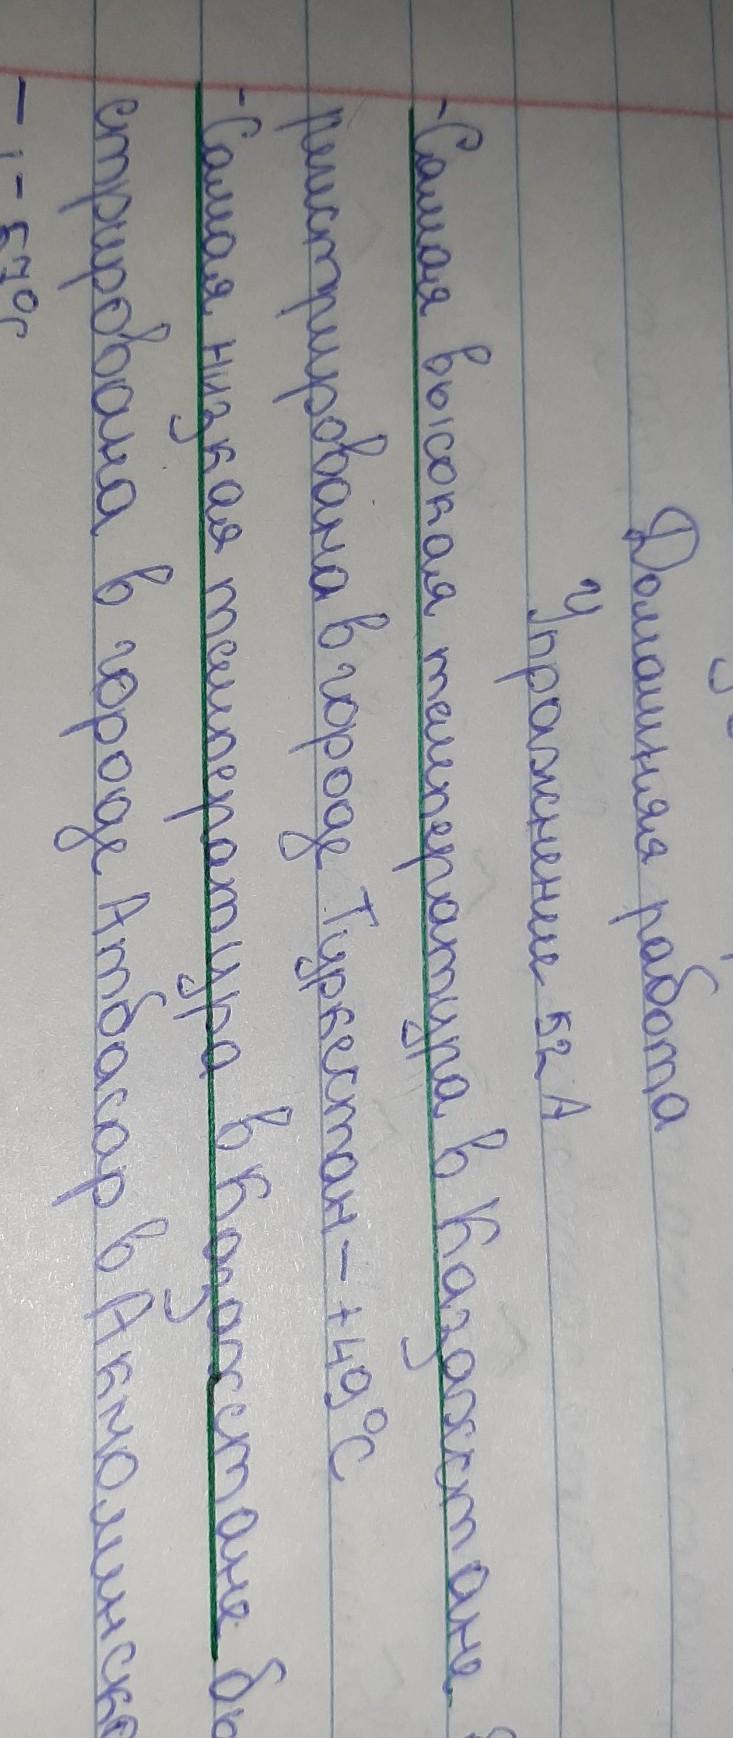 Домашняя работа
Упражнение 52 А
-Самая высокая температура в Казахстане
регистрирована в городе Туркестан - +49°C
-Самая низкая температура в Казахстане бы
стрирована в городе Атбасар в Акмолинско
-57°C